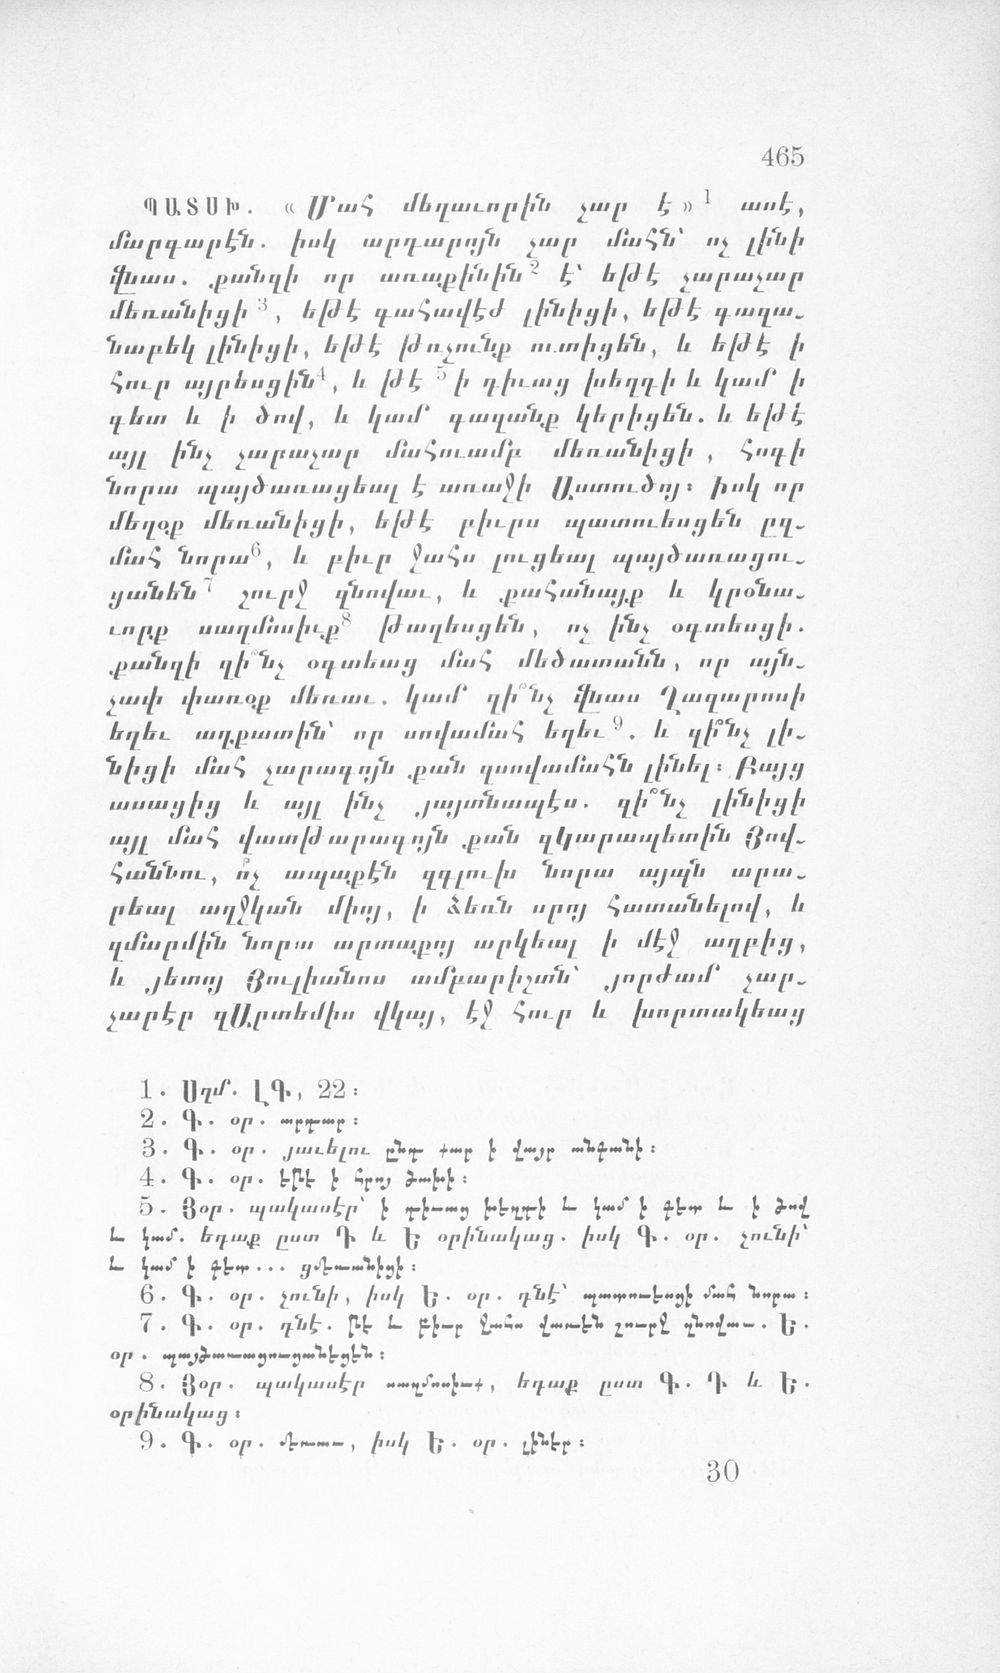 465
ՊԱՏՍԽ. «Մահ մեղաւորին չար է»1 ասէ,
մարգարէն. իսկ արդարոյն չար մահն՝ ոչ լինի
վնաս. քանզի որ առաքինին2 է՝ եթէ չարաչար
մեռանիցի3, եթէ գահավէժ լինիցի, եթէ գազա-
նաբեկ լինիցի, եթէ թռչունք ուտիցեն, և եթէ ի
հուր այրեսցին4, և թէ 5 ի դիւաց խեղդի և կամ ի
գետ և ի ծով, և կամ գազանք կերիցեն. և եթէ
այլ ինչ չարաչար մահուամբ մեռանիցի, հոգի
նորա պայծառացեալ է առաջի Աստուծոյ: Իսկ որ
մեղօք մեռանիցի, եթէ բիւրս պատուեսցեն ըզ-
մահ նորա6, և բիւր ջահս լուցեալ պայծառացու-
ցանեն7 շուրջ զնովաւ, և քահանայք և կրօնա-
ւորք սաղմոսիւք8 թաղեսցեն, ոչ ինչ օգտեսցի.
քանզի զի՞նչ օգտեաց մահ մեծատանն, որ այն-
չափ փառօք մեռաւ. կամ զի՞նչ վնաս Ղազարոսի
եղեւ աղքատին՝ որ սովամահ եղեւ9. և զի՞նչ լի-
նիցի մահ չարագոյն քան զսովամահն լինել: Բայց
ասացից և այլ ինչ յայտնապէս. զի՞նչ լինիցի
այլ մահ վատթարագոյն քան զԿարապետին Յով-
հաննու, ո՞չ ապաքէն զգլուխ նորա այպն արա-
րեալ աղջկան միոյ, ի ձեռն սրոյ հատանելով, և
զմարմին նորա արտաքոյ արկեալ ի մէջ աղբից,
և յետոյ Յուլիանոս ամբարիշտն՝ յորժամ չար-
չարէր զԱրտեմիս վկայ, էջ հուր և խորտակեաց
1. Սղմ. ԼԳ, 22:
2. Գ. օր. արդար:
3. Գ. օր. յաւելու ընդ քար ի վայր անգանի:
4. Գ. օր. եթէ ի հրոյ ծախի:
5. Յօր. պակասէր՝ ի դիւաց խեղդի և կամ ի գետ և ի ծով
և կամ. եդաք ըստ Դ և Ե օրինակաց. իսկ Գ. օր. չունի՝
և կամ ի գետ... ցմեռանիցի:
6. Գ. օր. չունի, իսկ Ե. օր. դնէ՝ պատուեսցի մահ նորա:
7. Գ. օր. դնէ. թէ և բիւր ջահս վառեն շուրջ զնովաւ. Ե.
օր. պայծառացուցանեցեն:
8. Յօր. պակասէր սաղմոսիւք, եդաք ըստ Գ. Դ և Ե.
օրինակաց:
9. Գ. օր. մեռաւ, իսկ Ե. օր. լիներ:
30